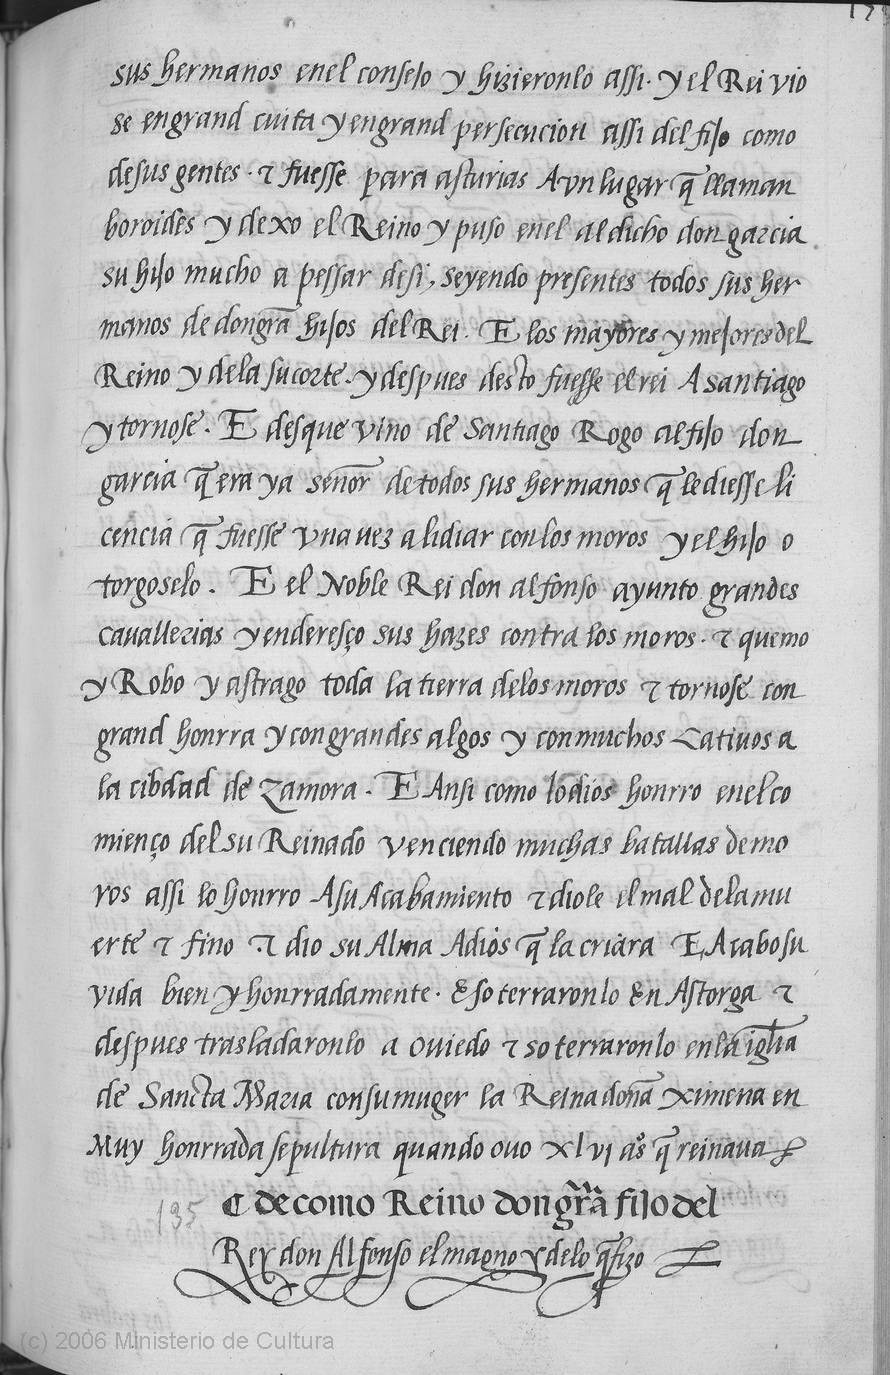 173
sus hermanos enel consejo y hizieronlo assi. y el Rei vio
se engrand cuita y engrand persecucion assi del fijo como
desus gentes. τ fuesse para asturias A vn lugar q̃ llaman
boroides y dexo el Reino y puso enel al dicho don garcia
su hijo mucho a pessar desi, seyendo presentes todos sus her
manos de dongr̃a hijos del Rei. E los mayores y mejores del
Reino y dela su corte. y despues desto fuesse el rei A santiago
y tornose. E desque vino de Santiago Rogo al fijo don
garcia q̃ era ya señor de todos sus hermanos q̃ le diesse li
cencia q̃ fuesse vna vez a lidiar con los moros y el hijo o
torgoselo. E el Noble Rei don alfonso ayunto grandes
cauallerias y enderesço sus hazes contra los moros. τ quemo
y Robo y astrago toda la tierra delos moros τ tornose con
grand honrra y con grandes algos y con muchos Catiuos a
la cibdad de Zamora. E Ansi como lo dios honrro enel co
mienço del su Reinado venciendo muchas batallas de mo
ros assi lo honrro A su Acabamiento τ diole el mal dela mu
erte τ fino τ dio su Alma A dios q̃ la criara E Acabo su
vida bien y honrradamente. & soterraronlo En Astorga τ
despues trasladaronlo a Ouiedo τ soterraronlo enla igl̃ia
de Sancta Maria con su muger la Reina doña Ximena en
Muy honrrada sepultura quando ouo xlvj as̃ q̃ reinaua
135
C de como Reino don gr̃a fijo del
Rey don Alfonso el magno y delo q̃ fizo
(c) 2006 Ministerio de Cultura